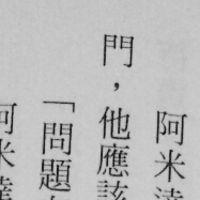 阿米達
門，他應該
「問題
阿米達